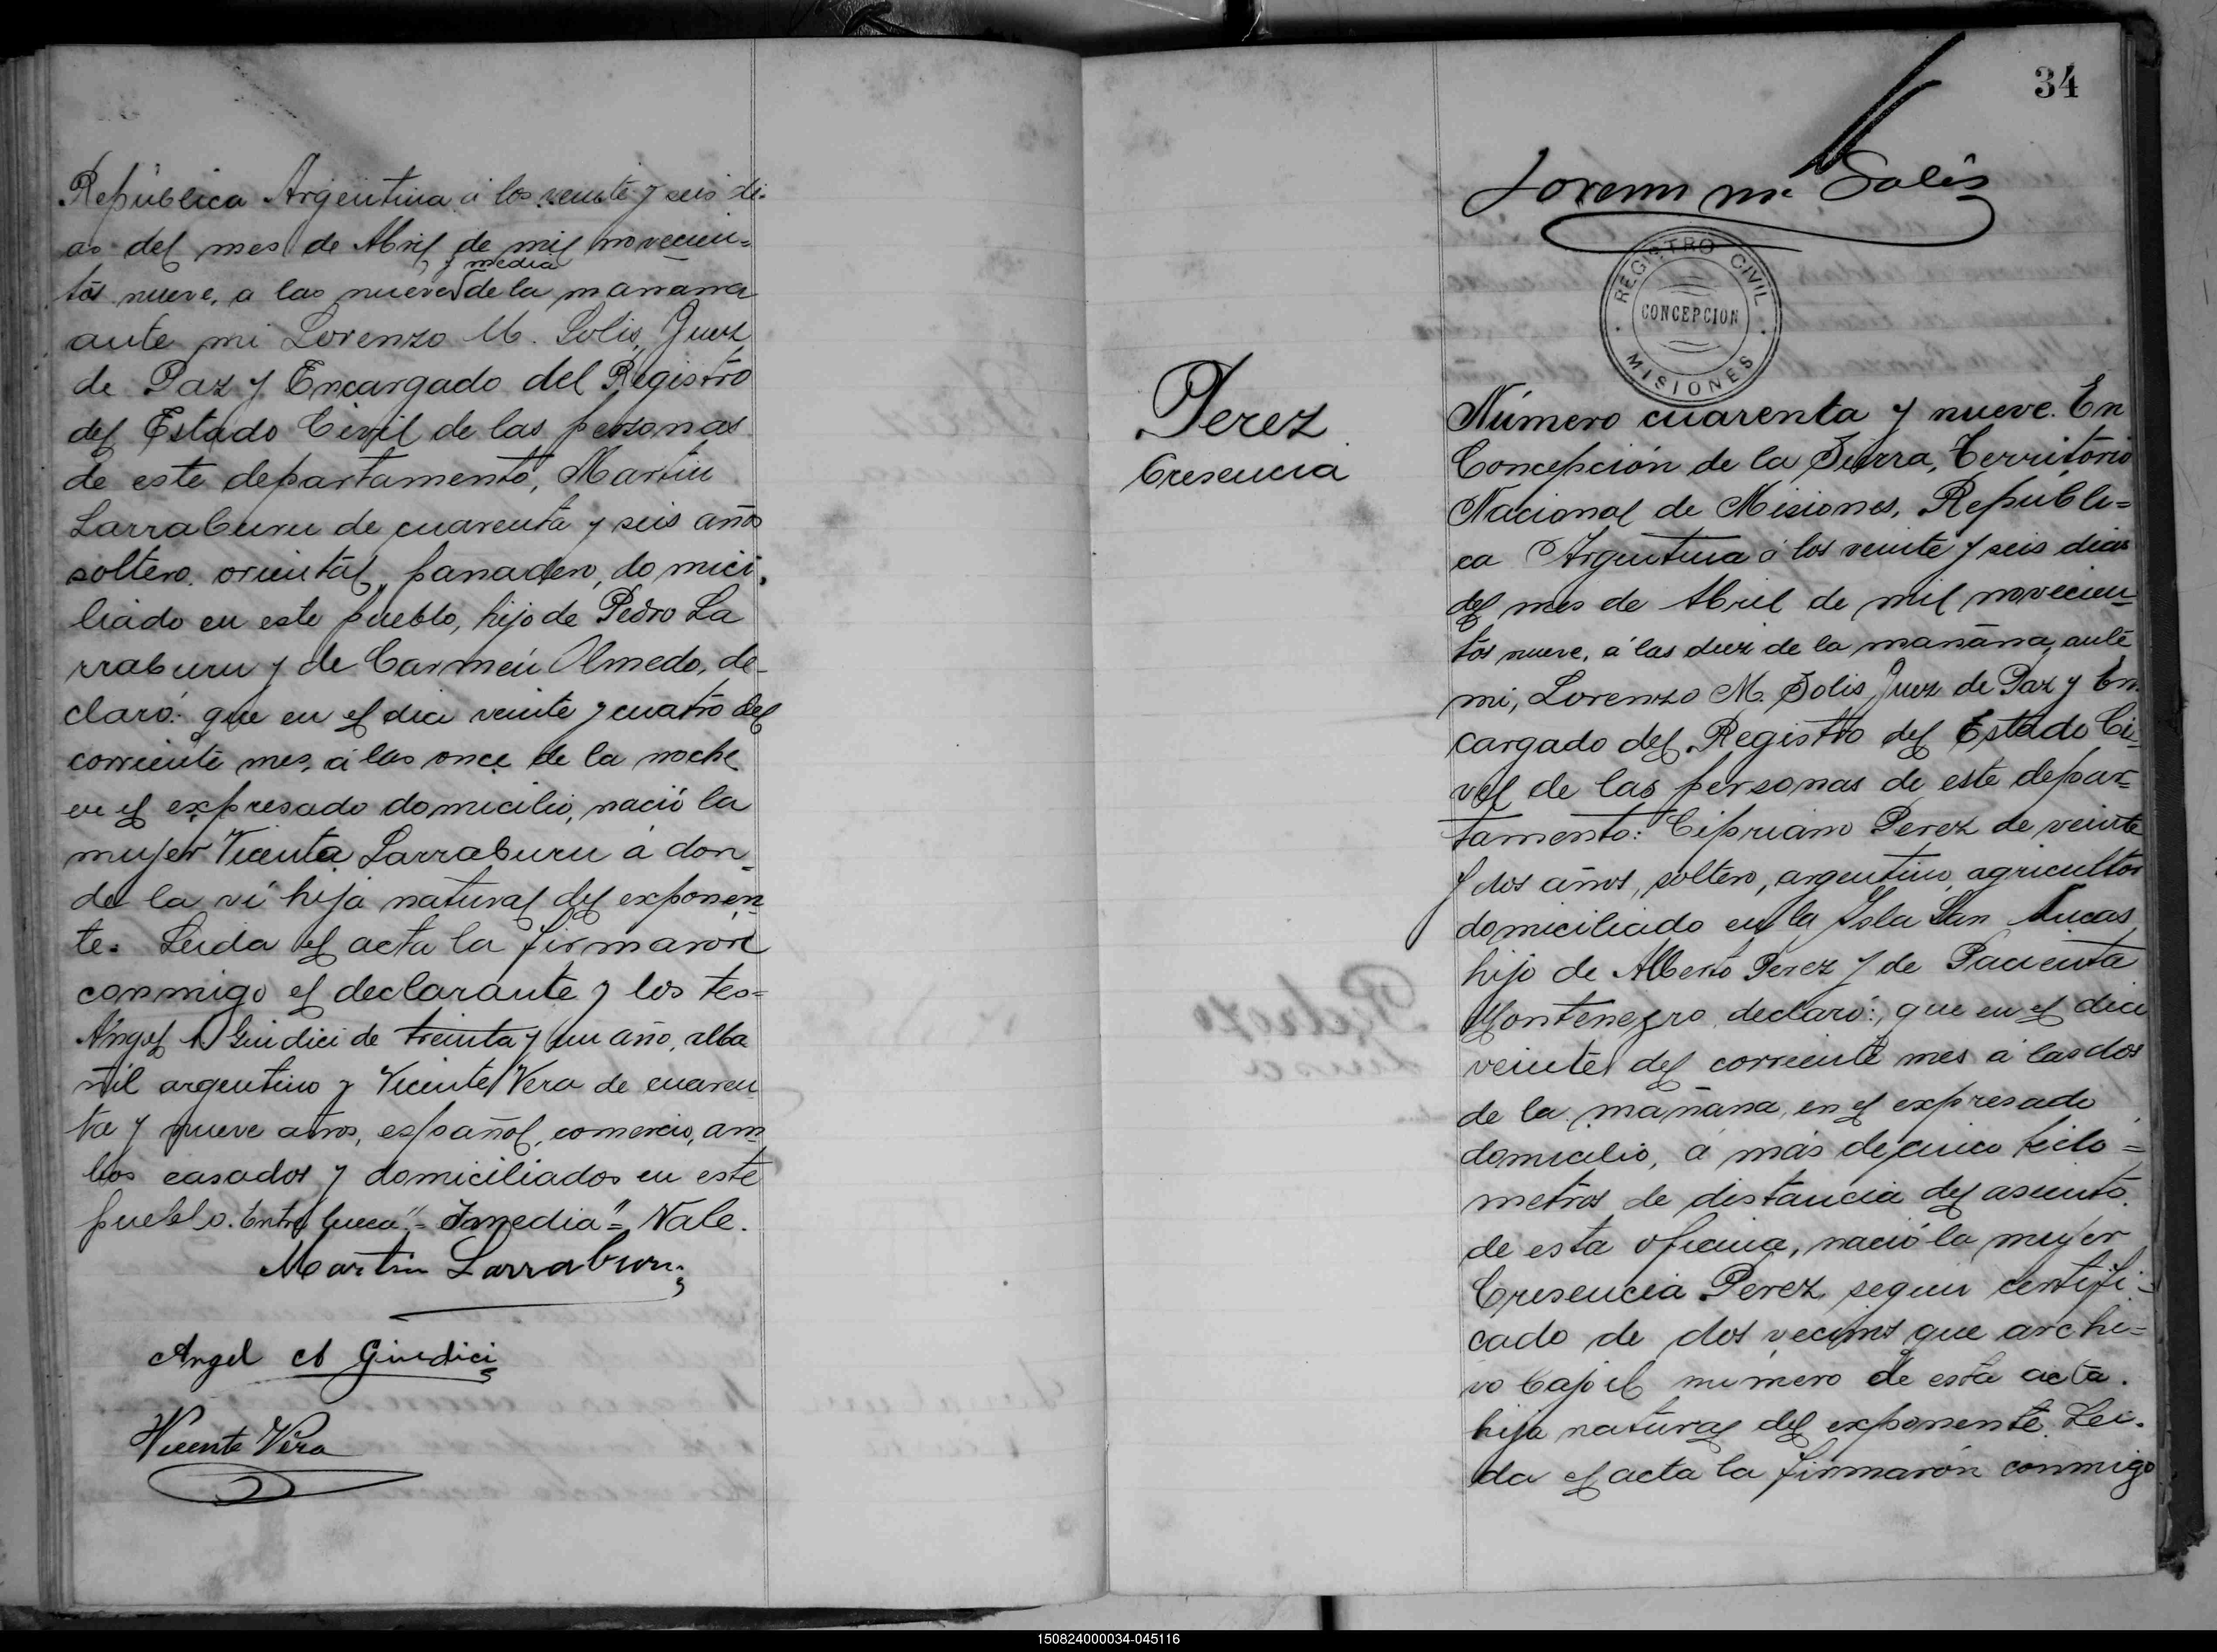 República Argentina á los veinte y seis di-
as del mes de Abril de mil novecien=
y media
tos nueve, a las nueve de la mañana
ante mi Lorenzo M. Solis, Juez
de Paz y Encargado del Registro
del Estado Civil de las personas
de este departamento, Martin
Larraburu de cuarenta y seis años
soltero, oriental, panadero, domici-
liado en este pueblo, hijo de Pedro La
rraburu y de Carmen Olmedo, de-
claró: que en el dia veinte y cuatro del
corriente mes, á las once de la noche
en el expresado domicilio, nació la
mujer Vicenta Larraburu á don-
de la ví hija natural del exponen-
te. Leida el acta la firmaron
conmigo el declarante y los tes=
Angel A Giudici de treinta y un año, alba
ñil argentino y Vicente Vera de cuaren
ta y nueve años, español, comercio, am-
bos casados y domiciliados en este
pueblo. Entre linea "= y media "= Vale.
Martin Larraburu
Angel A Giudici
Vicente Vera
34
Lorenzo M. Solis
REGISTRO CIVIL
CONCEPCION
MISIONES
Perez
Cresencia
Número cuarenta y nueve. En
Concepción de la Sierra, Territorio
Nacional de Misiones, Republi=
ca Argentina á los veinte y seis dias
del mes de Abril de mil novecien-
tos nueve, á las diez de la mañana, ante
mi, Lorenzo M. Solis Juez de Paz y En-
cargado del Registro del Estado Ci-
vil de las personas de este depar-
tamento: Cipriano Perez de veinte
y dos años, soltero, argentino, agricultor
domiciliado en la Isla San Lucas
hijo de Alberto Perez y de Pacienta
Montenegro, declaró: que en el dia
veinte del corriente mes á las dos
de la mañana, en el expresado
domicilio, á más de cinco kilo=
metros de distancia del asiento
de esta oficina, nació la mujer
Cresencia Perez segun certifi=
cado de dos vecinos que archi=
vo bajo el número de esta acta.
hija natural del exponente. Lei-
da el acta la firmarón conmigo
150824000034-045116